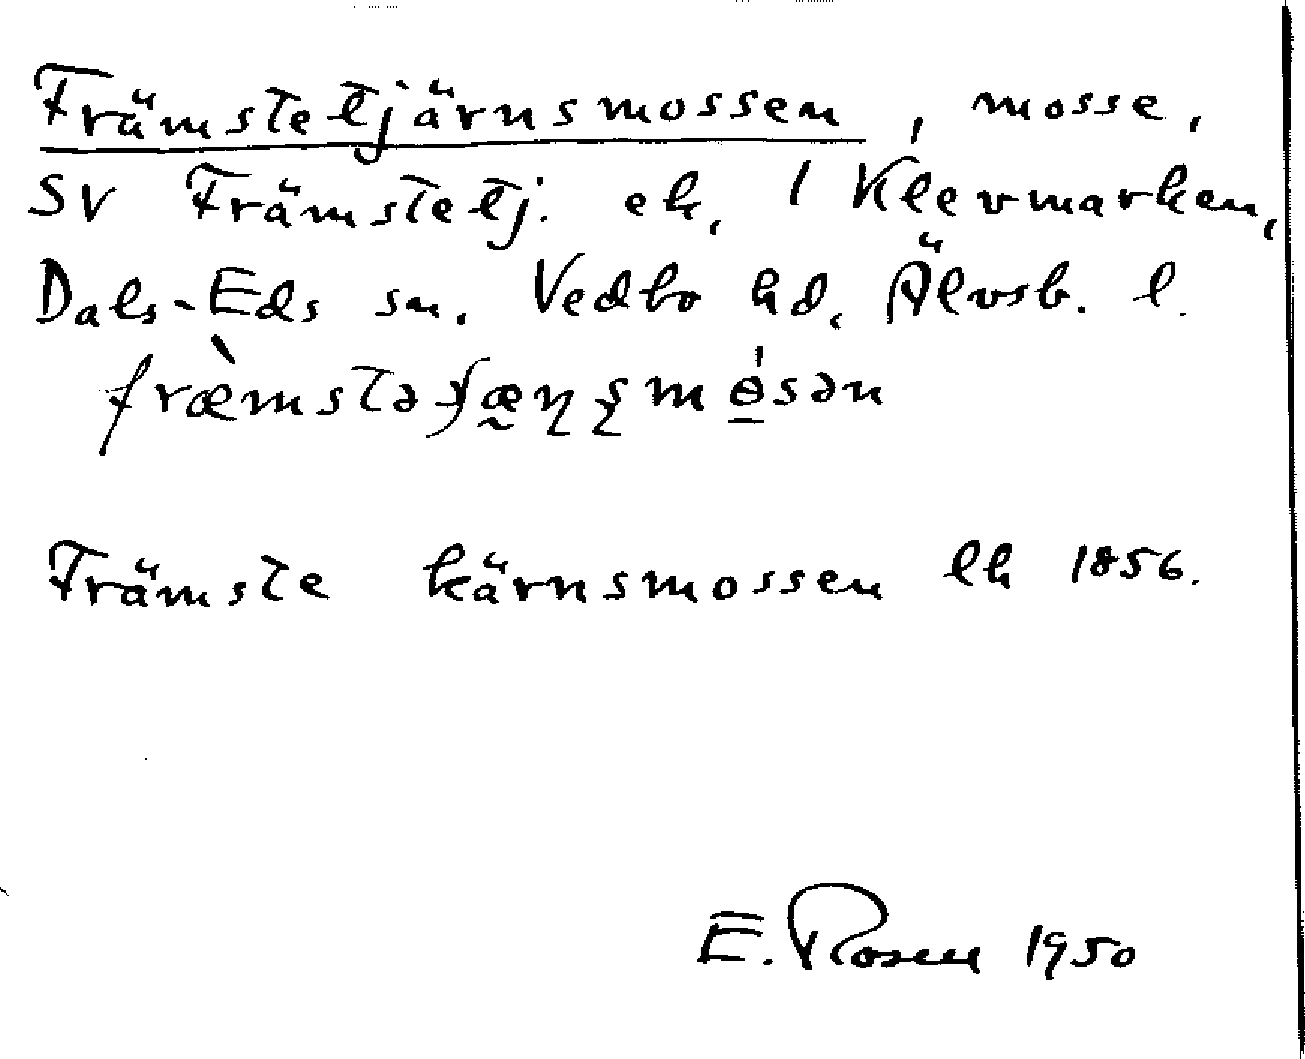 Främstetjärnsmossen, mosse,
SV Främstetj. ek, 1 Klevmarken,
Dals-Eds sn. Vedbo hd, Älvsb. l.
Främste kärnsmossen lh 1856.
E. Rosen 1950